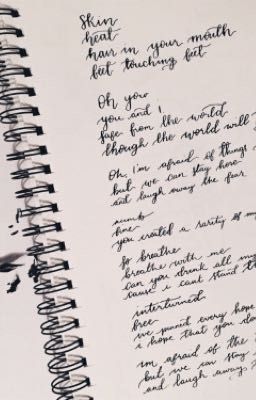 Skin
heat
hair in your mouth
feet touching feet
Oh you
you and I
safe from the world
though the world will
Oh, i'm afraid of things
but we can stay here
and laugh away the fear
numb
fine
you create a rarity of my
So breathe
breathe with me
can you drink all my
cause i cant stand th
intertwined
free
we pinned every hope
i hope that you do
im afraid of the
but we can stay
and laugh away